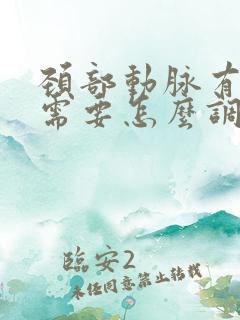 頚部動脉有
需要怎麼調
臨安2
未任同意禁止转载